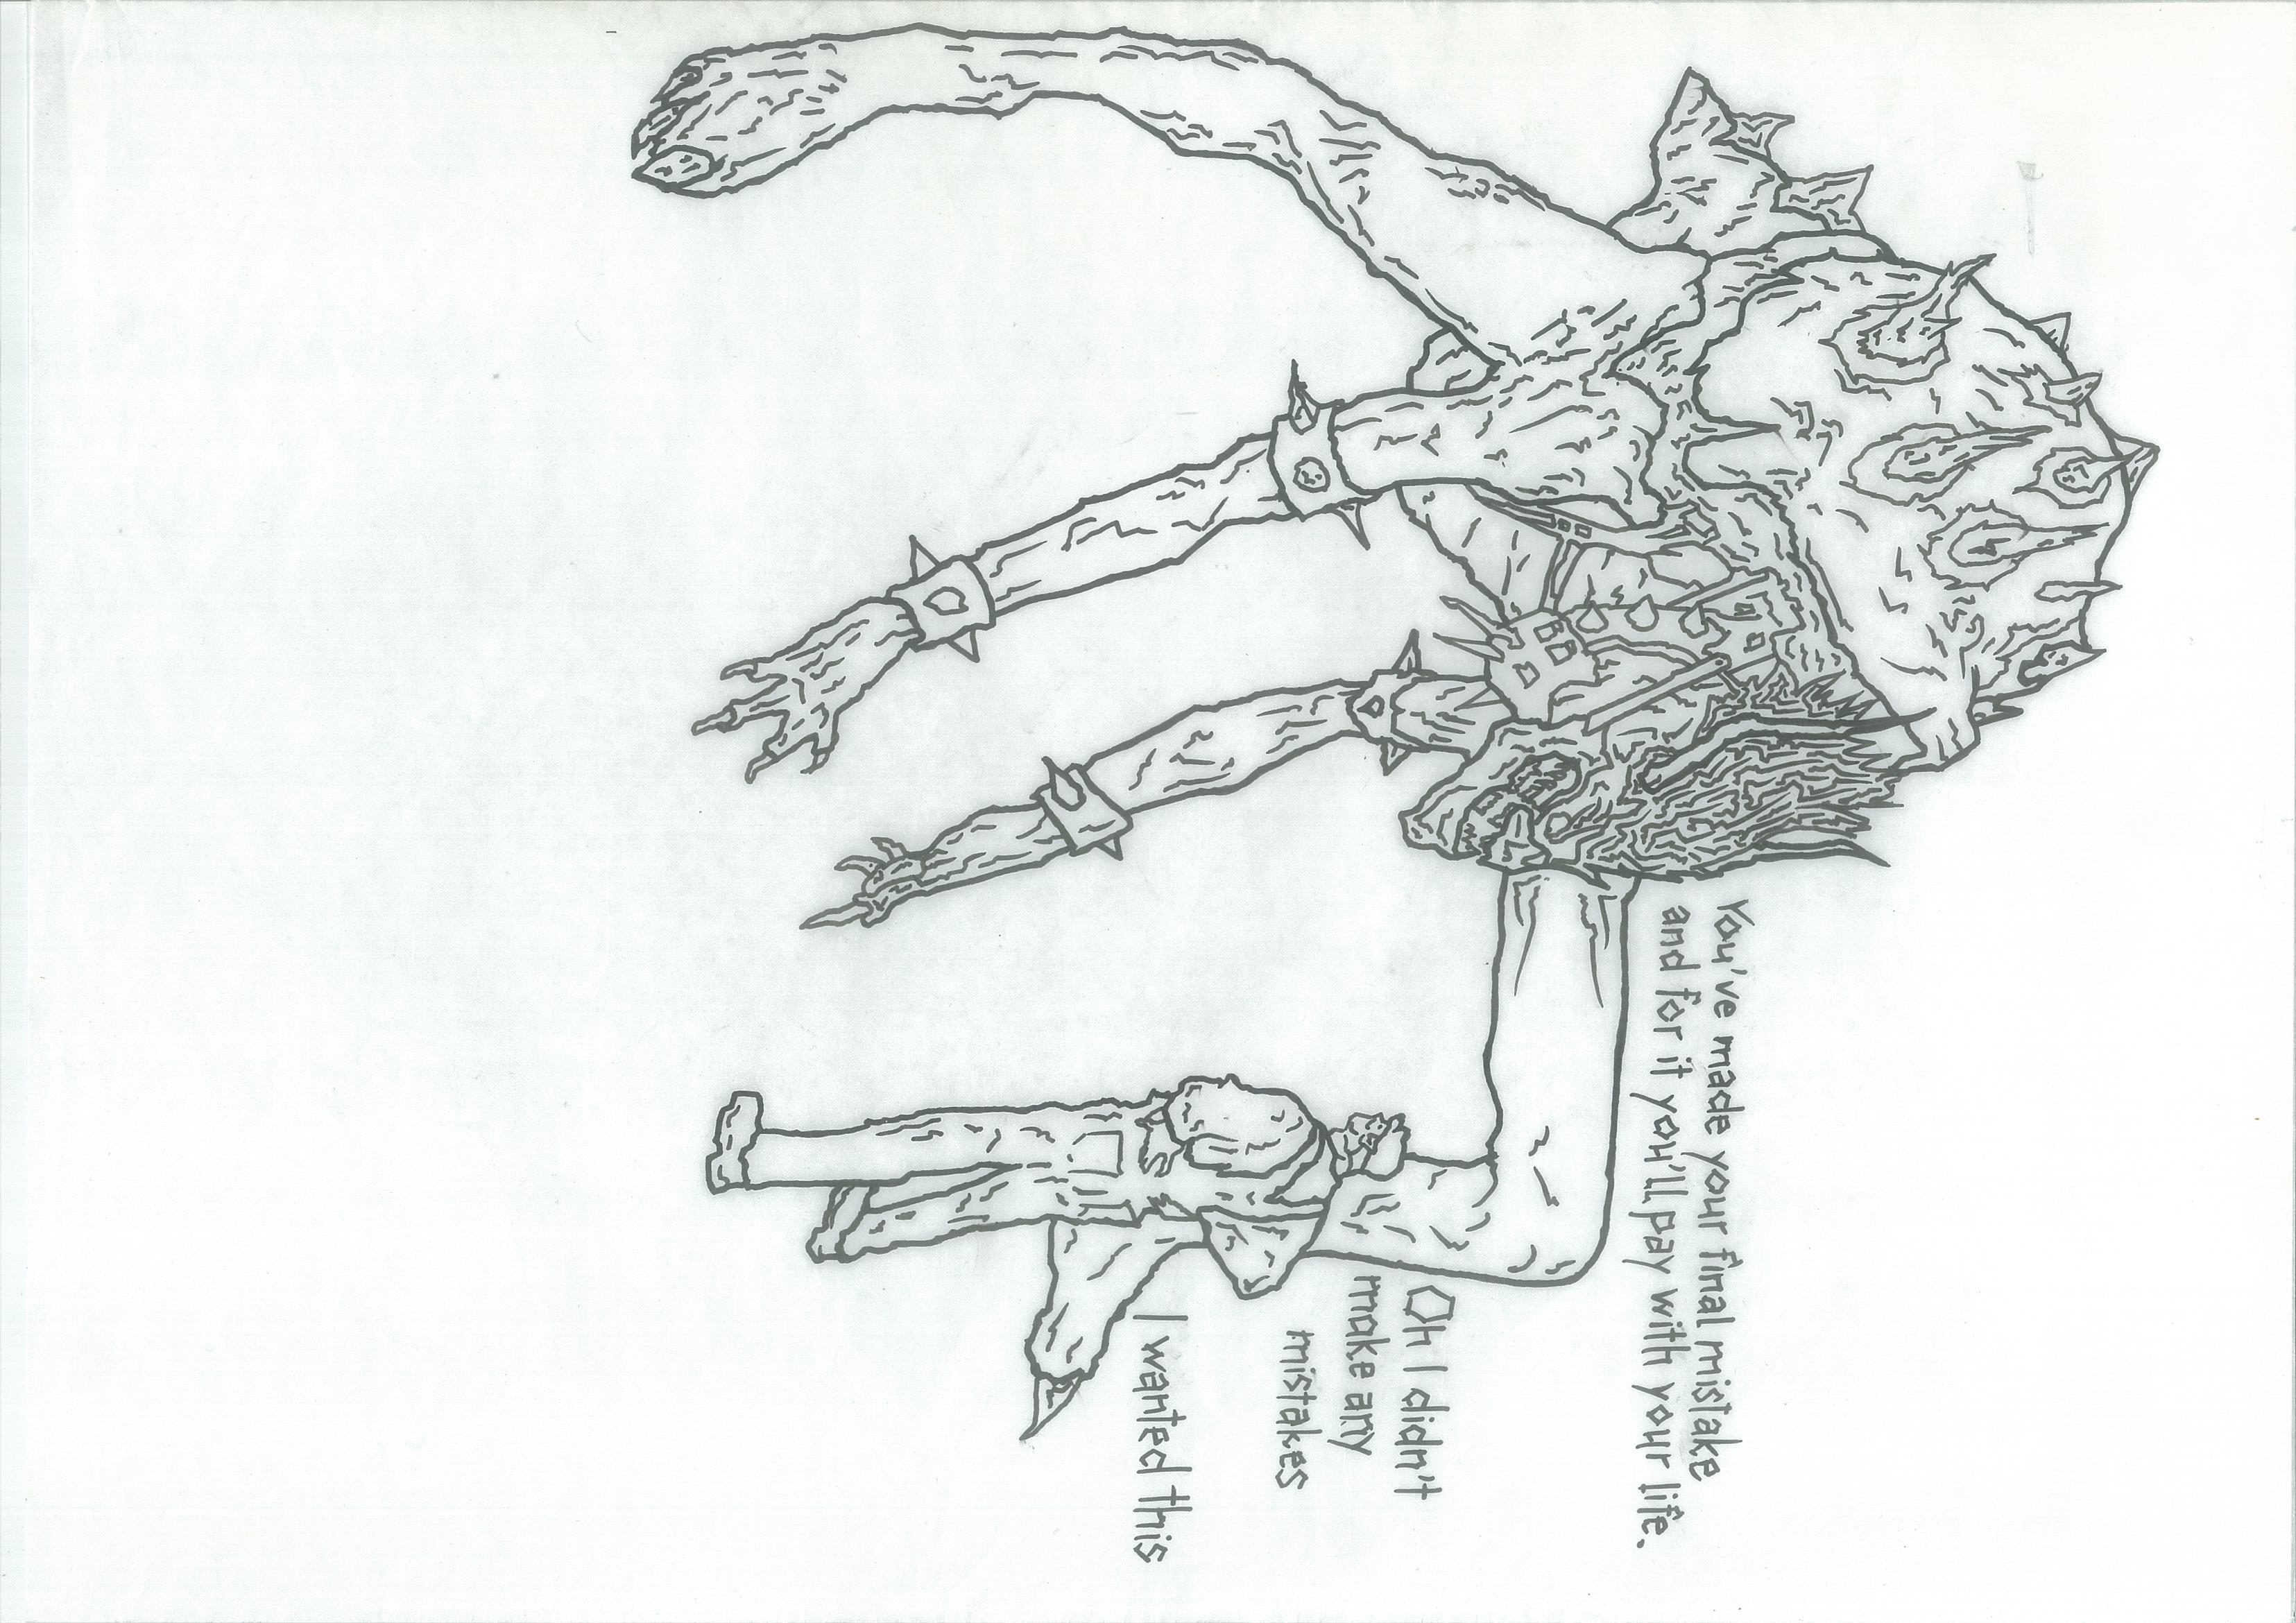 You've made your final mistake
and for it you'll pay with your life.
Oh I didn't
make any
mistakes
I wanted this